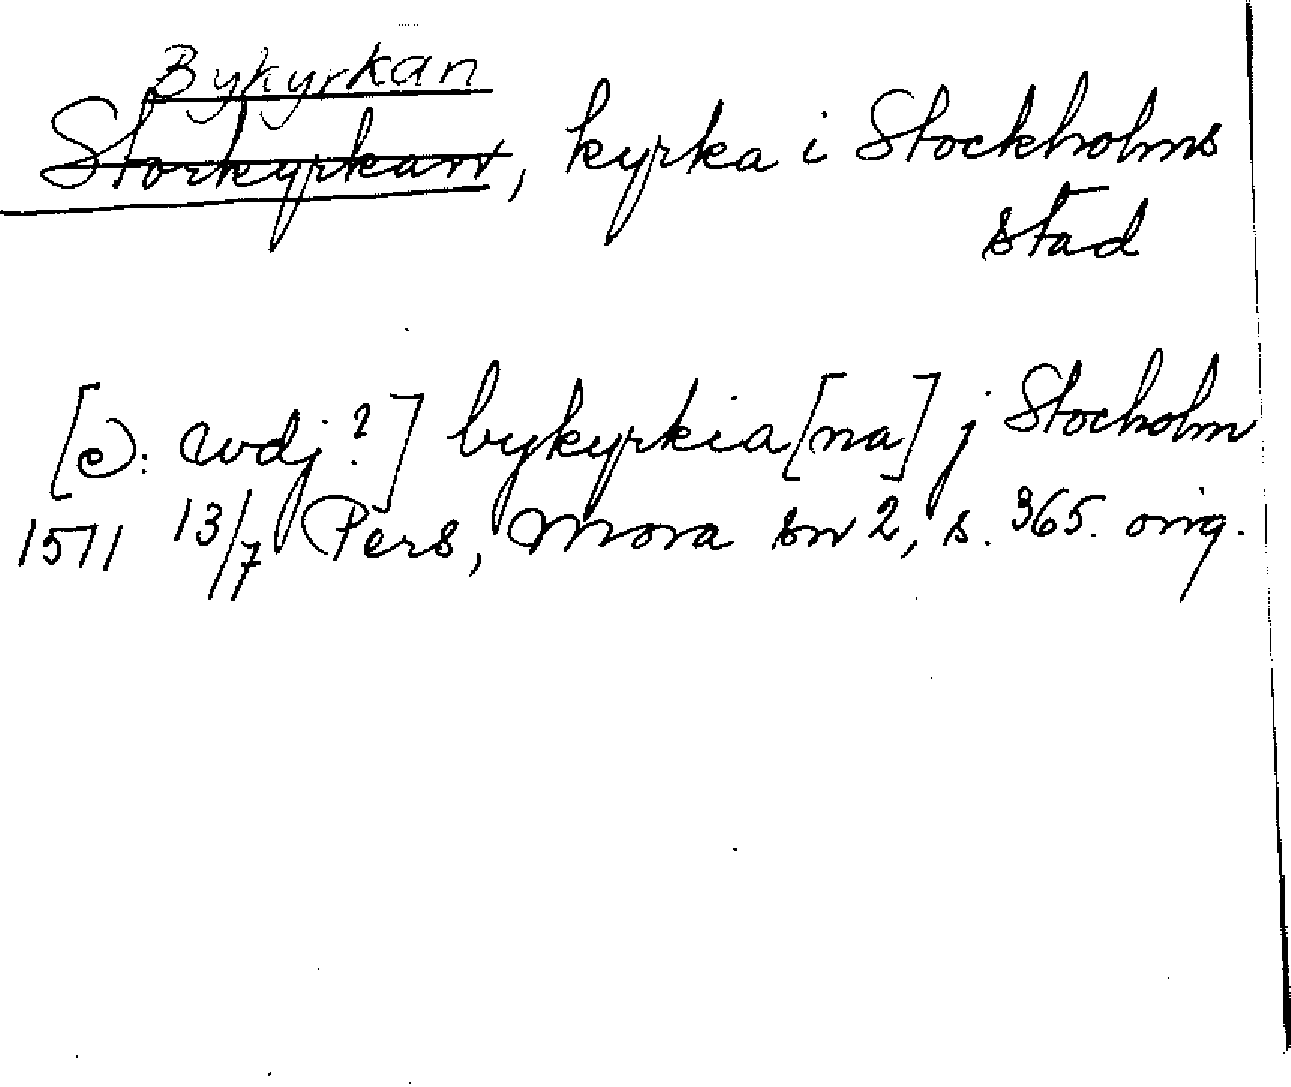 Bykyrkan
Storkyrkan, kyrka i Stockholms
stad
[e: avdj?] bykyrkia[na] j Stocholm
1571 13/7 Pers, Mora sn 2, s. 365. orig.